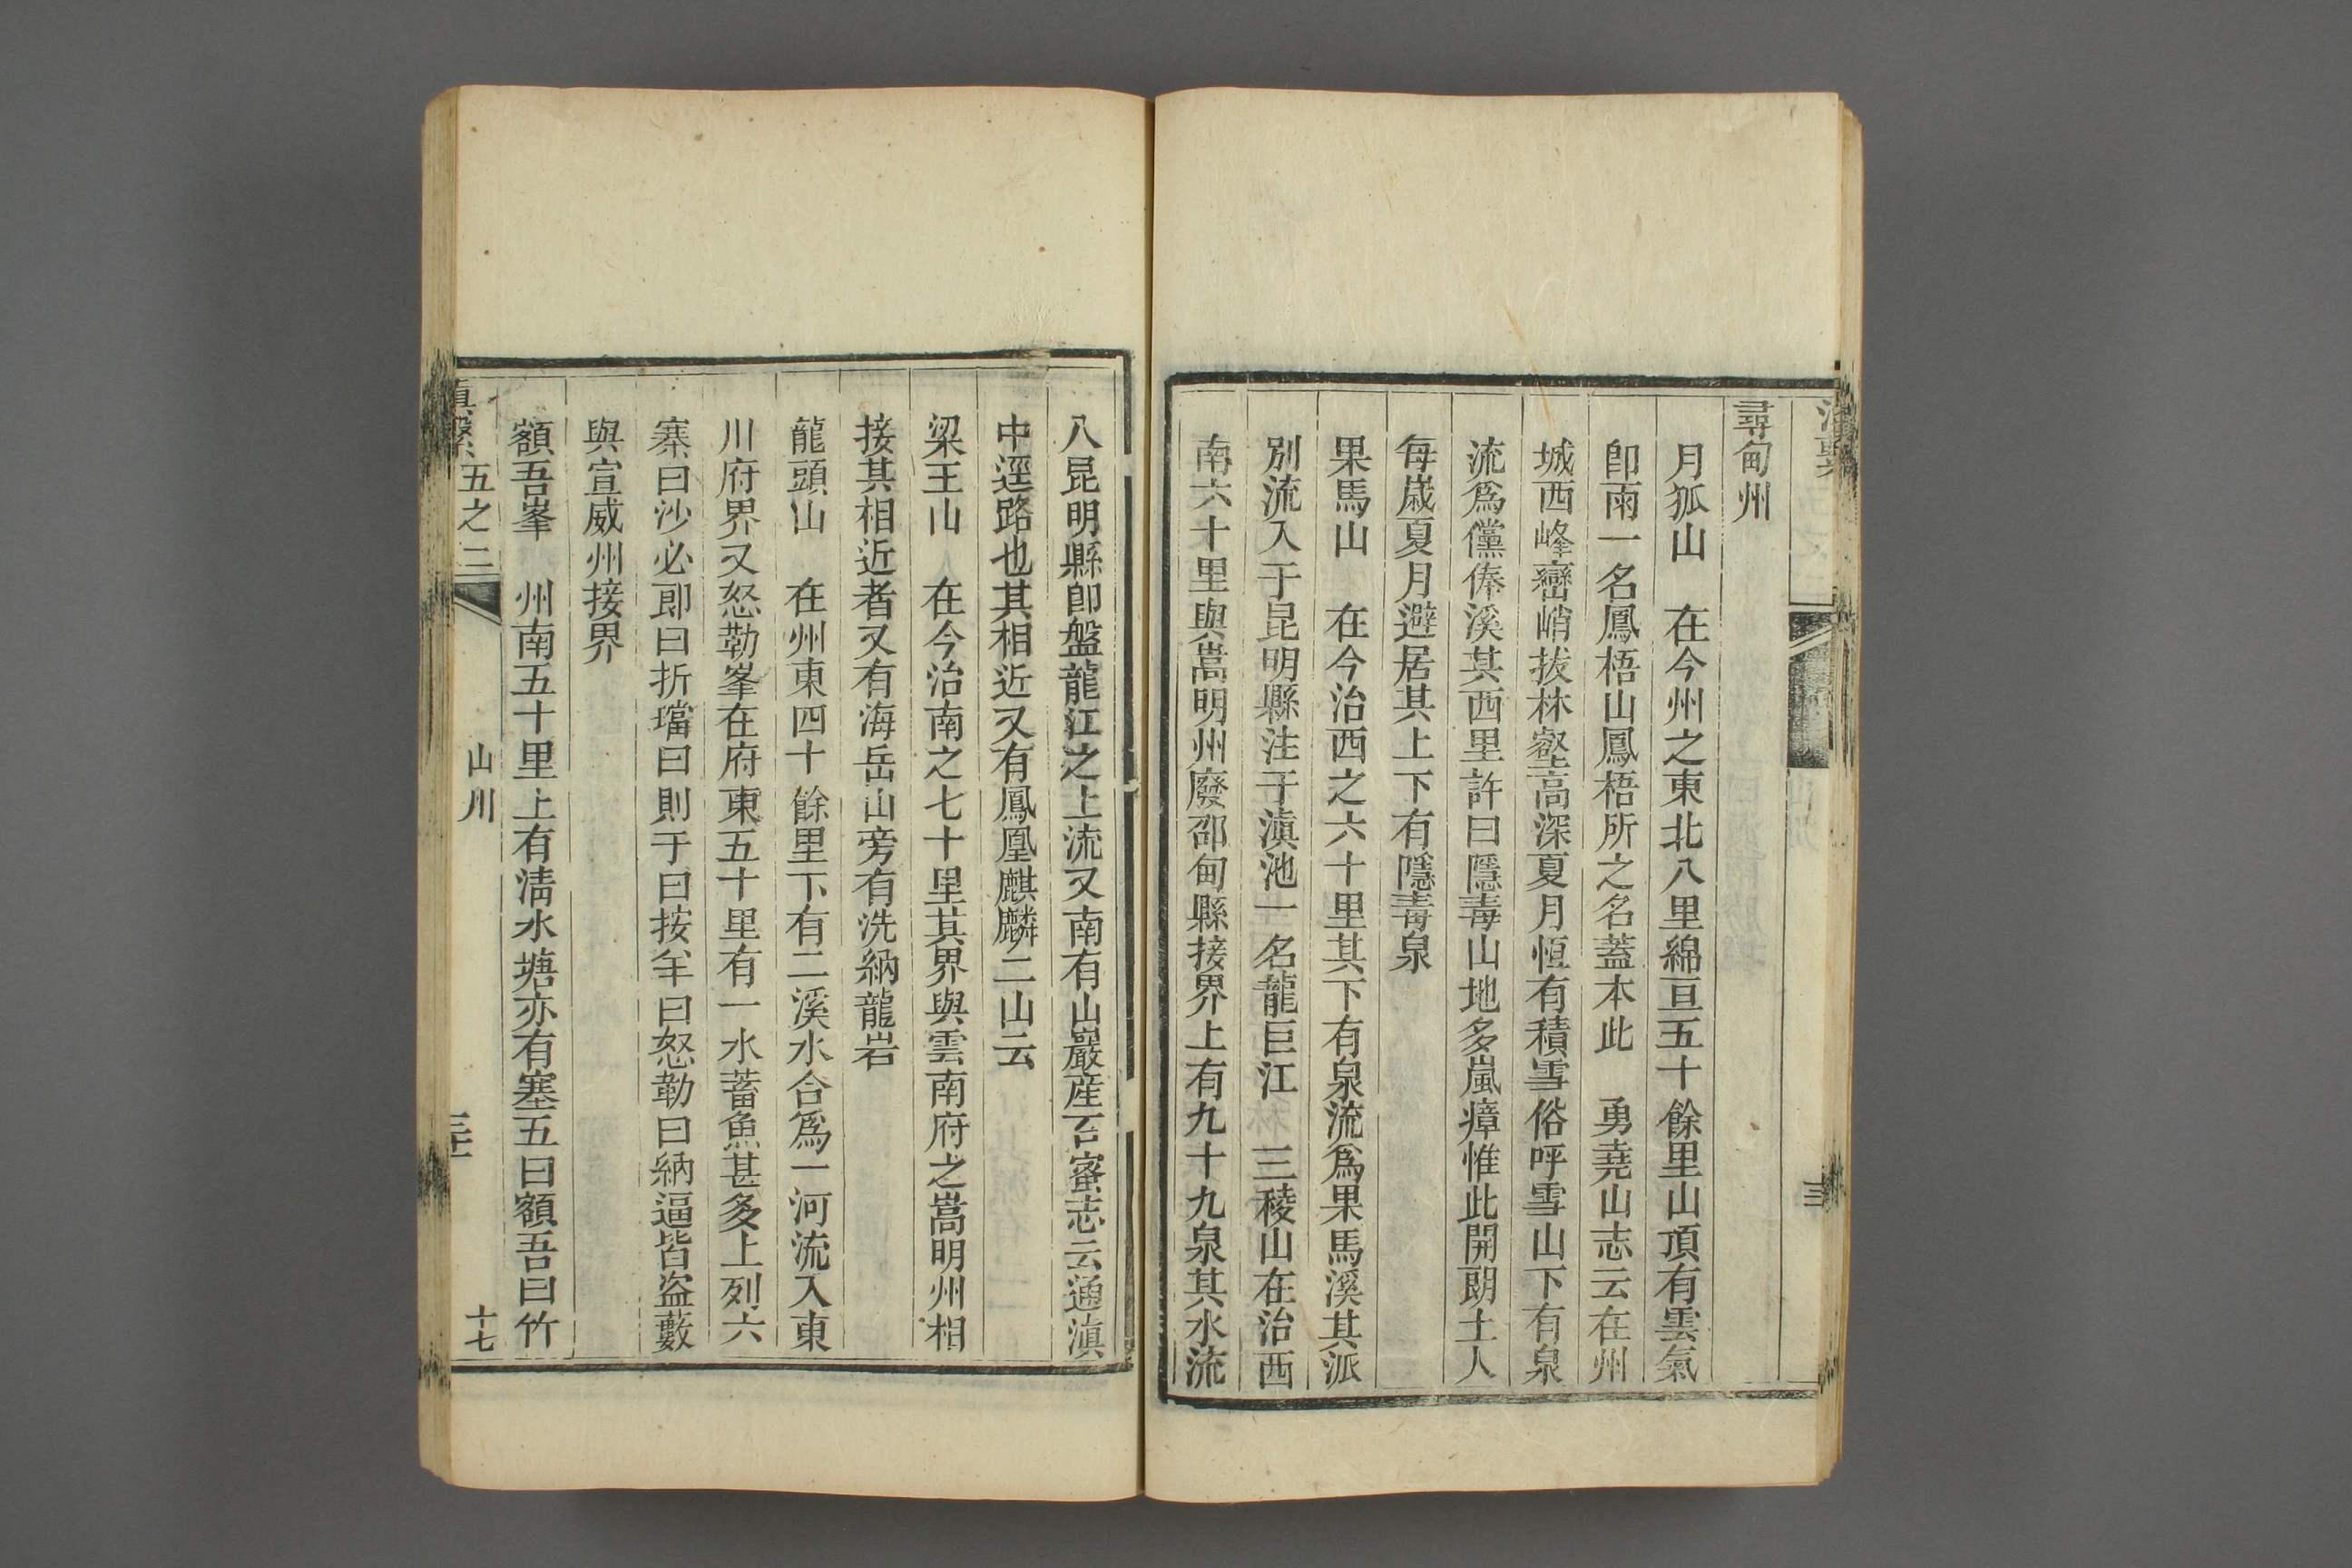 尋甸州
月狐山　在今州之東北八里綿亘五十餘里山頂有雲氣
卽雨一名鳳梧山鳳梧所之名蓋本此　勇堯山志云在州
城西峰巒峭拔林壑高深夏月恒有積雪俗呼雪山下有泉
流爲儻俸溪其西里許曰隱毒山地多嵐瘴惟此開朗土人
每歲夏月避居其上下有隱毒泉
果馬山　在今治西之六十里其下有泉流爲果馬溪其派
別流入于昆明縣注于滇池一名龍巨江　三稜山在治西
南六十里與嵩明州廢邵甸縣接界上有九十九泉其水流
八昆明縣卽盤龍江之上流又南有山巖産石蜜志云通滇
中逕路也其相近又有鳳凰麒麟二山云
梁王山　在今治南之七十里其界與雲南府之嵩明州相
接其相近者又有海岳山旁有洗納龍岩
龍頭山　在州東四十餘里下有二溪水合爲一河流入東
川府界又怒勒峯在府東五十里有一水蓄魚甚多上列六
寨曰沙必郎曰折璫曰則于曰按牟曰怒勒曰納逼皆盜藪
與宣威州接界
額吾峯　州南五十里上有淸水塘亦有塞五曰額吾曰竹
滇繫　五之三　山川　十七